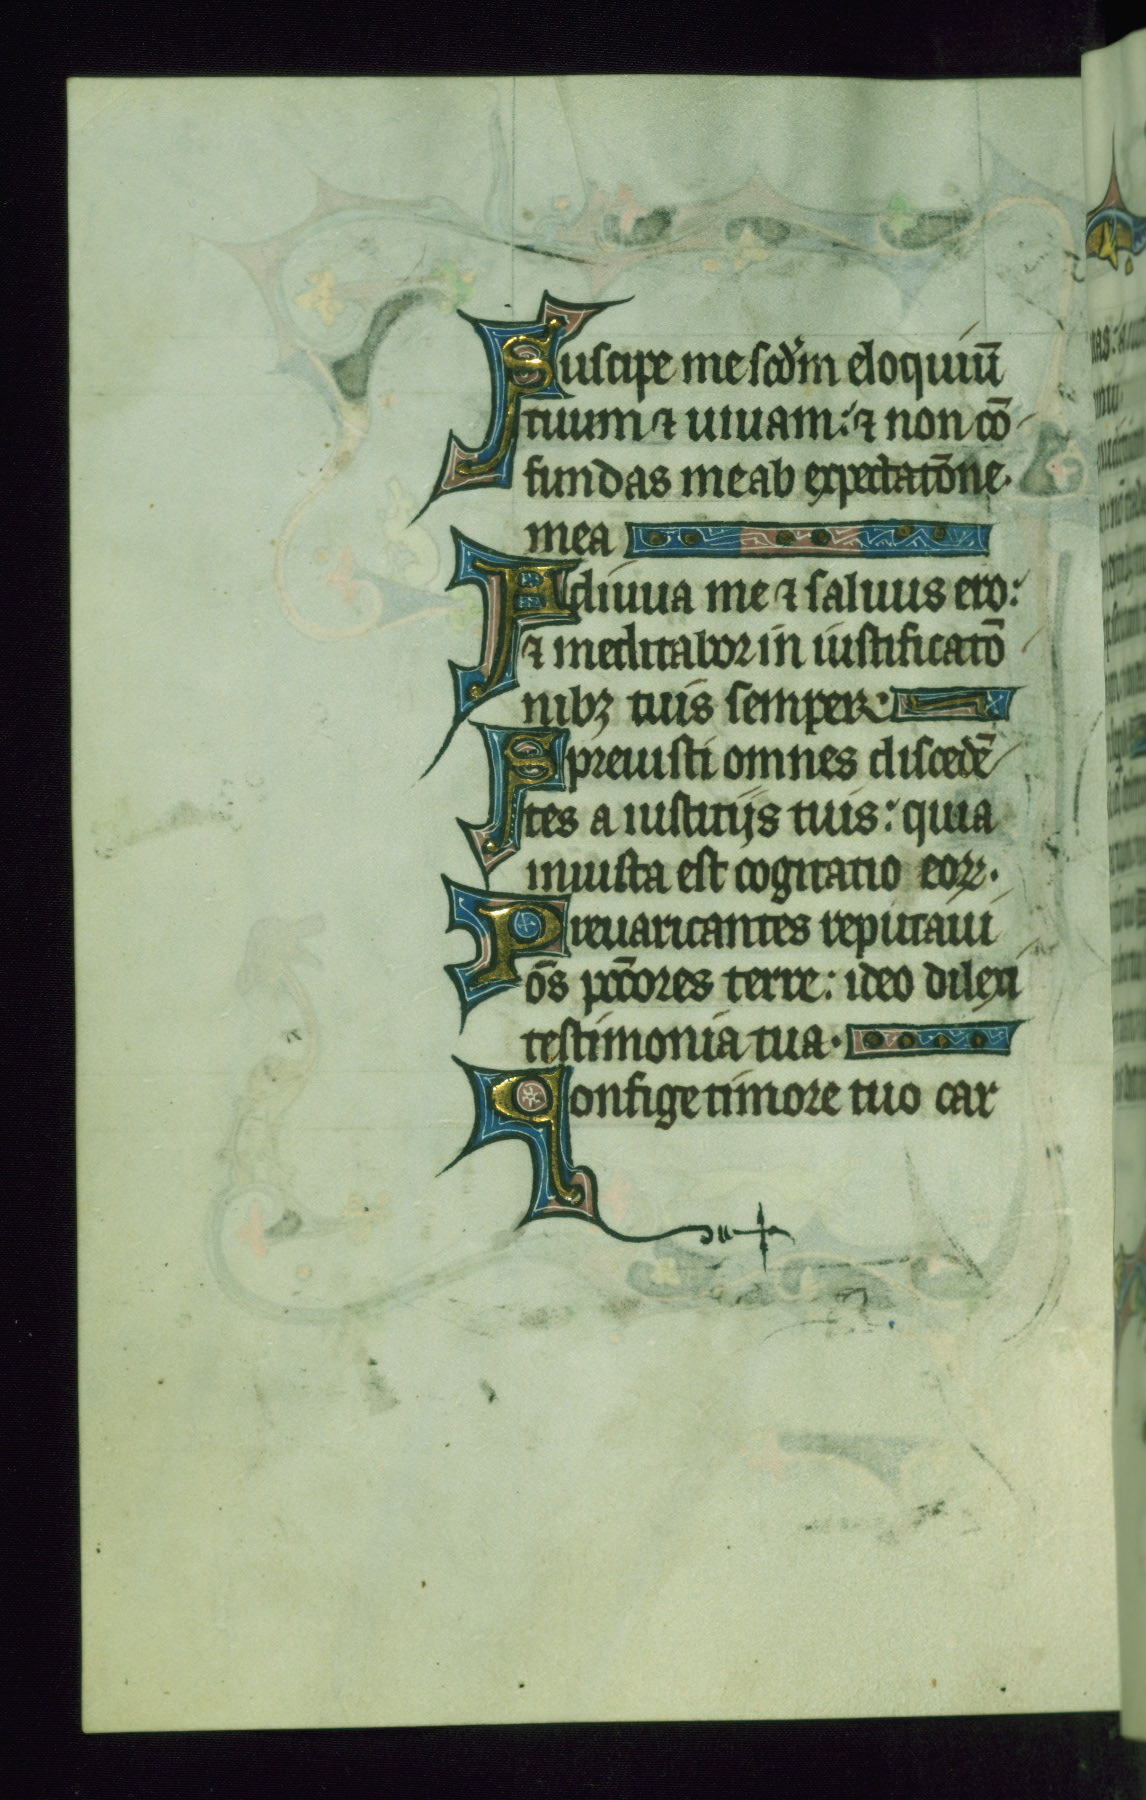 Suscipe me scd'm eloquiū
tuum ⁊ uiuam: ⁊ non cō
fundas me ab expectatōne
mea
Adiuua me ⁊ saluus ero:
⁊ meditabor in iustificatō
nibꝫ tuis semper.
Spreuisti omnes discedē
tes a iustitijs tuis: quia
iniusta est cogitatio eoꝝ.
Preuaricantes reputaui
ōs pctōres terre: ideo dilexi
testimonia tua.
Confige timore tuo car